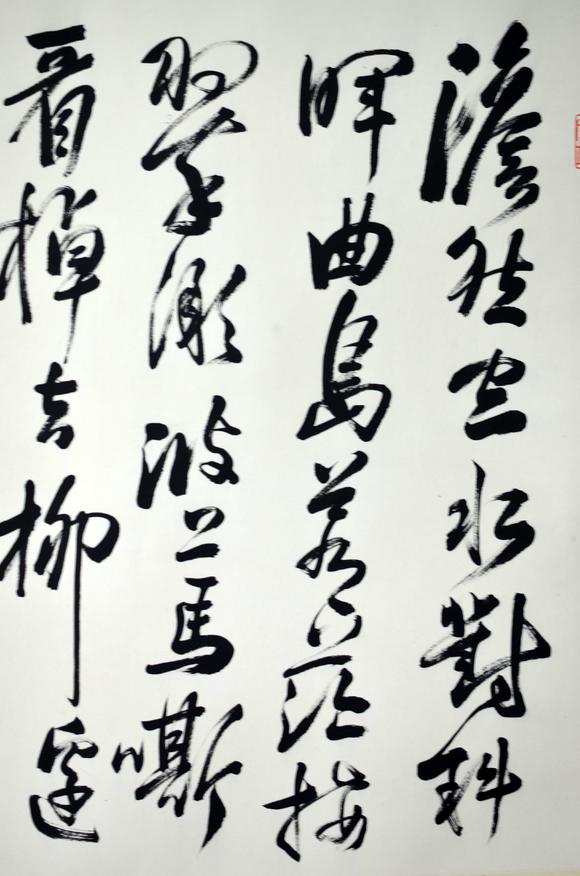 澹然空水對斜
暉曲島蒼茫接
翠微波上馬嘶
看棹去柳邊